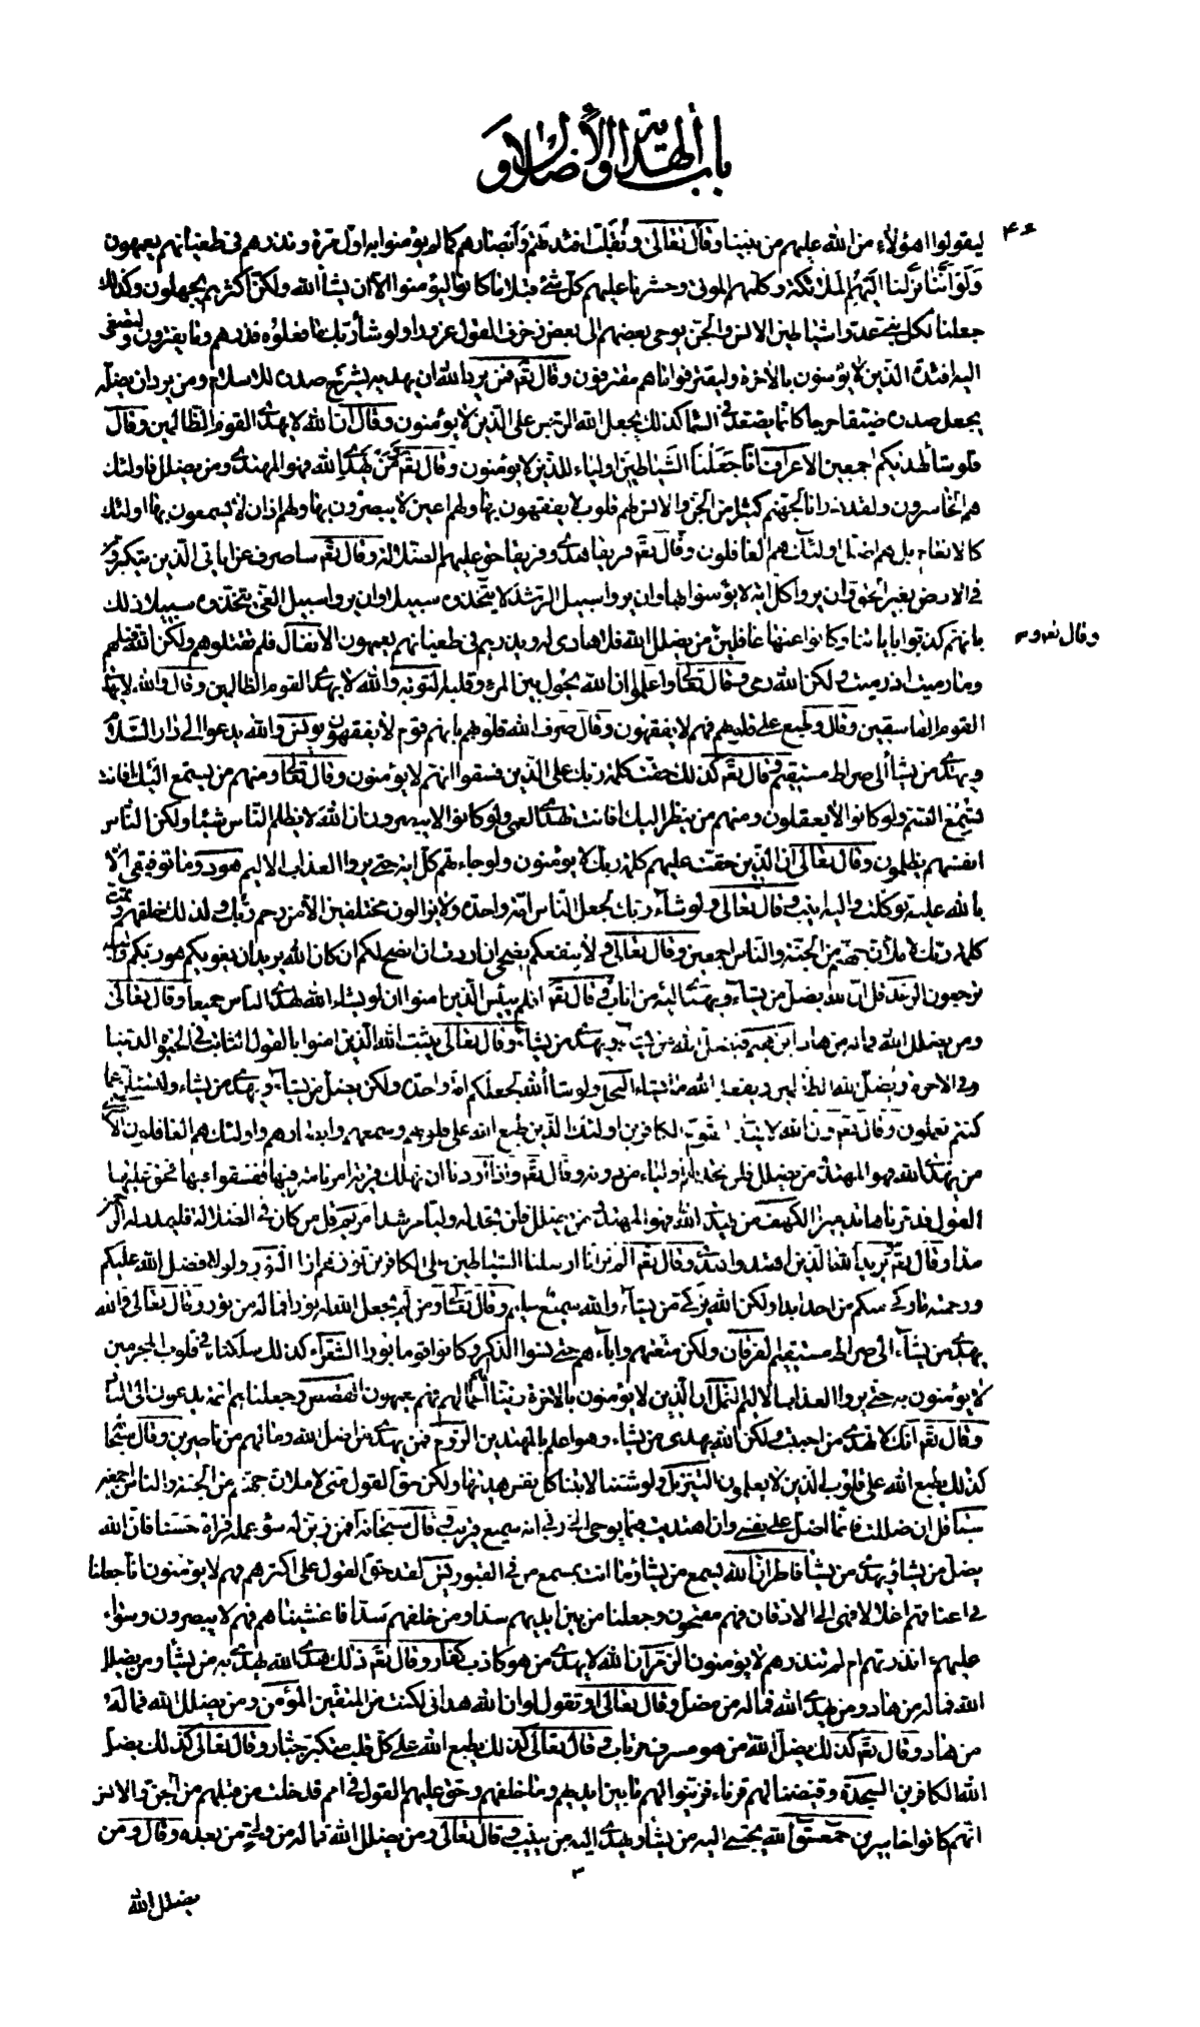 باب الهداية والأضلال و
ليقولوا اهؤلاء من الله عليهم من بيننا وقال تعالى ونقلب افئدتهم وأبصارهم كما لم يؤمنوا به اول مرة ونذرهم في طغيانهم يعمهون
وَلَوْ أَنَّنا نزلنا اليهم الملائكة وكلمهم الموتى وحشرنا عليهم كل شئ قبلا ما كانوا ليؤمنوا الا ان يشأ الله ولكن اكثرهم يجهلون وكذلك
جعلنا لكل نبي عدوا شياطين الانس والجن يوحي بعضهم الى بعض زخرف القول غرورا ولو شاء ربك ما فعلوه فذرهم وما يفترون ولتصغى
اليه افئدة الذين لا يؤمنون بالاخرة وليقترفوا ما هم مقترفون وقال تع فمن يرد الله ان يهديه يشرح صدره للاسلام ومن يرد ان يضله
يجعل صدره ضيقا حرجا كانما يصعد في السما كذلك يجعل الله الرجس على الذين لا يؤمنون وقال ان الله لا يهدي القوم الظالمين وقال
فلو شاء لهديكم اجمعين الاعراف انا جَعَلْنا الشياطين اولياء للذين لا يؤمنون وقال تع من يهدي الله فهو المهتدي ومن يضلل فاولئك
هم الخاسرون ولقد ذرانا لجهنم كثيرا من الجن والانس لهم قلوب لا يفقهون بها ولهم اعين لا يبصرون بها ولهم اذان لا يسمعون بها اولئك
كالانعام بل هم اضل اولئك هم الغافلون وقال تع فريقا هدى وفريقا حق عليهم الضلالة وقال تع ساصرف عن اياتي الذين يتكبرون
في الارض بغير الحق وان يروا كل اية لا يؤمنوا بها وان يروا سبيل الرشد لا يتخذوه سبيلا وان يروا سبيل الغي يتخذوه سبيلا ذلك
بانهم كذبوا باياتنا وكانوا عنها غافلين من يضلل الله فلا هادي له ويذرهم في طغيانهم يعمهون الانفال فلم تقتلوهم ولكن الله قتلهم
وما رميت اذ رميت ولكن الله رمى وقال تعالى واعلموا ان الله يحول بين المرء وقلبه التوبة والله لا يهدي القوم الظالمين وقال والله لا يهدي
القوم الفاسقين وقال وطبع على قلوبهم فهم لا يفقهون وقال صرف الله قلوبهم بانهم قوم لا يفقهون يونس والله يدعوا الى دار السلام
ويهدي من يشأ الى صراط مستقيم وقال تع كذلك حقت كلمة ربك على الذين فسقوا انهم لا يؤمنون وقال تعالى ومنهم من يستمع اليك افانت
تسمع الصم ولو كانوا لا يعقلون ومنهم من ينظر اليك افانت تهدي العمي ولو كانوا لا يبصرون ان الله لا يظلم الناس شيئا ولكن الناس
انفسهم يظلمون وقال تعالى ان الذين حقت عليهم كلمة ربك لا يؤمنون ولو جاءتهم كل اية حتى يروا العذاب الاليم هود وما توفيقي الا
بالله عليه توكلت واليه انيب وقال تعالى ولو شاء ربك لجعل الناس امة واحدة ولا يزالون مختلفين الا من رحم ربك ولذلك خلقهم وتمت
كلمة ربك لاملأن جهنم من الجنة والناس اجمعين وقال تعالى ولا ينفعكم نصحي ان اردت ان انصح لكم ان كان الله يريد ان يغويكم هو ربكم واليه
ترجعون الرعد قل ان الله يضل من يشاء ويهدي اليه من اناب وقال تع افلم ييئس الذين امنوا ان لو يشاء الله لهدى الناس جميعا وقال تعالى
ومن يضلل الله فما له من هاد ابرهيم فيضل الله من يشاء ويهدي من يشاء وقال تعالى يثبت الله الذين امنوا بالقول الثابت في الحيوة الدنيا
وفي الاخرة ويضل الله الظالمين ويفعل الله ما يشاء النحل ولو شاء الله لجعلكم امة واحدة ولكن يضل من يشاء ويهدي من يشاء ولتسئلن عما
كنتم تعملون وقال تع وان الله لا يهدي القوم الكافرين اولئك الذين طبع الله على قلوبهم وسمعهم وابصارهم واولئك هم الغافلون الاسرى
من يهدي الله فهو المهتدي ومن يضلل فلن تجد لهم اولياء من دونه وقال تع واذا اردنا ان نهلك قرية امرنا مترفيها ففسقوا فيها فحق عليها
القول فدمرناها تدميرا الكهف من يهدي الله فهو المهتدي ومن يضلل فلن تجد له وليا مرشدا مريم قل من كان في الضلالة فليمدد له الرحمن
مدا وقال تع يزيد الله الذين اهتدوا هدى وقال تع الم تر انا ارسلنا الشياطين على الكافرين تؤزهم ازا النور ولولا فضل الله عليكم
ورحمته ما زكى منكم من احد ابدا ولكن الله يزكي من يشاء والله سميع عليم وقال تعالى ومن لم يجعل الله له نورا فما له من نور وقال تعالى والله
يهدي من يشاء الى صراط مستقيم الفرقان ولكن متعتهم واباءهم حتى نسوا الذكر وكانوا قوما بورا الشعراء كذلك سلكناه في قلوب المجرمين
لا يؤمنون به حتى يروا العذاب الاليم النمل ان الذين لا يؤمنون بالاخرة زينا اعمالهم فهم يعمهون القصص وجعلناهم ائمة يدعون الى النار
وقال تع انك لا تهدي من احببت ولكن الله يهدي من يشاء وهو اعلم بالمهتدين الروم فمن يهدي من اضل الله وما لهم من ناصرين وقال سبحانه
كذلك يطبع الله على قلوب الذين لا يعلمون التنزيل ولو شئنا لاتينا كل نفس هديها ولكن حق القول مني لاملأن جهنم من الجنة والناس اجمعين
سبأ قل ان ضللت فانما اضل على نفسي وان اهتديت فبما يوحي الي ربي انه سميع قريب وقال سبحانه افمن زين له سوء عمله فراه حسنا فان الله
يضل من يشاء ويهدي من يشأ فاطر ان الله يسمع من يشاء وما انت بمسمع من في القبور يس لقد حق القول على اكثرهم فهم لا يؤمنون انا جعلنا
في اعناقهم اغلالا فهي الى الاذقان فهم مقمحون وجعلنا من بين ايديهم سدا ومن خلفهم سدا فاغشيناهم فهم لا يبصرون وسواء
عليهم ءانذرتهم ام لم تنذرهم لا يؤمنون الزمر ان الله لا يهدي من هو كاذب كفار وقال تع ذلك هدى الله يهدي به من يشأ ومن يضلل
الله فما له من هاد ومن يهدي الله فما له من مضل وقال تعالى او تقول لو ان الله هداني لكنت من المتقين المؤمن ومن يضلل الله فما له
من هاد وقال تع كذلك يضل الله من هو مسرف مرتاب وقال تعالى كذلك يطبع الله على كل قلب متكبر جبار وقال تعالى كذلك يضل
الله الكافرين السجدة وقيضنا لهم قرناء فزينوا لهم ما بين ايديهم وما خلفهم وحق عليهم القول في امم قد خلت من قبلهم من الجن والانس
انهم كانوا خاسرين حمعسق الله يجتبي اليه من يشاء ويهدي اليه من ينيب وقال تعالى ومن يضلل الله فما له من ولي من بعده وقال ومن
يضلل الله